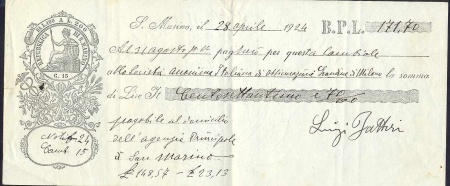 S. Marino, il 28 aprile 1924 B.P.L. 171,70
BOLLO A L. 200
REPUBBLICA DI S. MARINO
C. 15
Al 31 agosto p.v. pagherò per questa Cambiale
alla Società Anonima Italiana di Milano la somma
di Lire It. Centosettantuno e 70/00
pagabile al domicilio
dell'agenzia Principale
di San Marino
£ 148,57 - £ 23,13
Luigi
24
Cent. 15